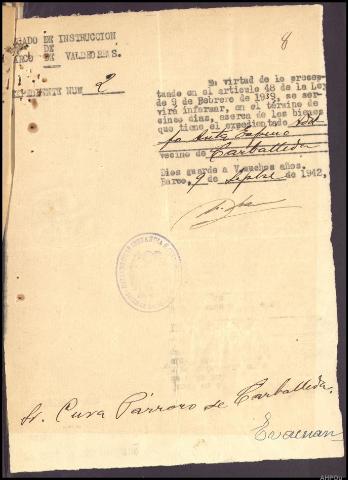 8
GADO DE INSTRUCCION
DE
ARCO DE VALDEORRAS.
EXPEDIENTE NUM 2
En virtud de lo precep-
tuado en el artículo 48 de la Ley
de 9 de Febrero de 1939, se ser-
virá informar, en el término de
cinco días, acerca de los bienes
que tiene el expedientado
vecino de Carballeda
Dios guarde a V muchos años.
Barco, 9 de Sepbre de 1942,
Sr. Cura Párroco de Carballeda.
Evacuan
AHPOu